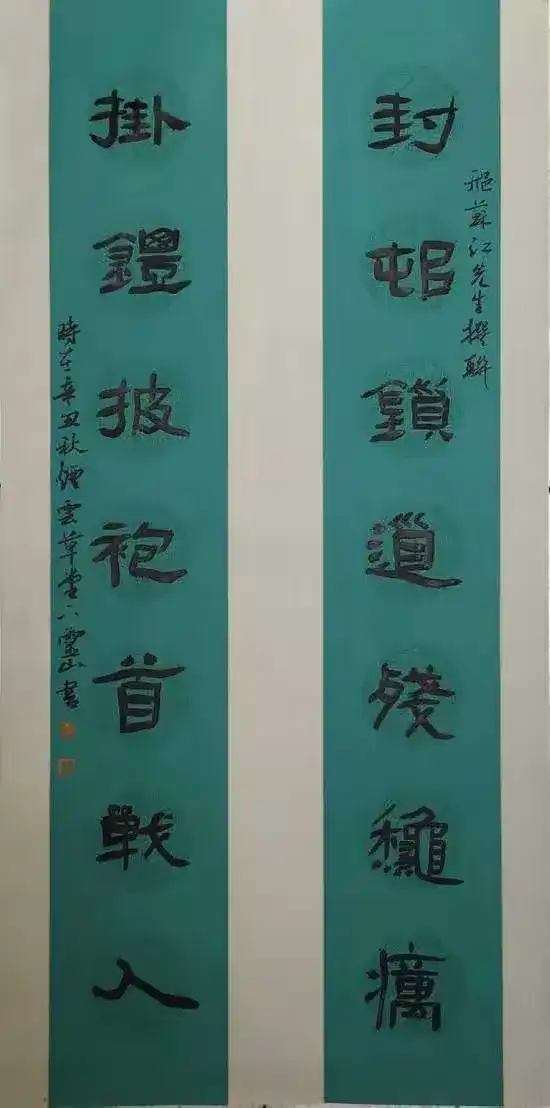 封邨鎖道殘穐癘
蘇江先生撰聯
掛鎧披袍首戰人
時在辛丑秋雲草堂靈山書